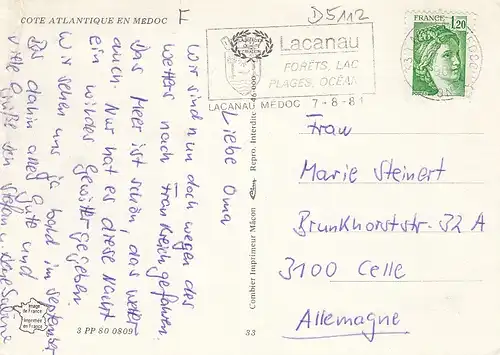 COTE ATLANTIQUE EN MEDOC
F
D5112
Lacanau
FORÊTS, LAC
PLAGES, OCÉAN
LACANAU MEDOC 7-8-81
FRANCE
1,20
Liebe Oma
wir sind nun doch wegen des
Wetters nach Frankreich gefahren.
Das Meer ist schön, das Wetter
auch. Nur hat es diese Nacht
ein wildes Gewitter gegeben.
Wir sehen uns ja bald im September
Bis dahin alles Gute und
viele Grüße von Stefan u.
Frau
Marie Steinert
Brunkhorststr. 32 A
3100 Celle
Allemagne
Combier Imprimeur Mâcon
Repro. Interdite
Image de France
Imprimée en France
3 PP 80 0809
33